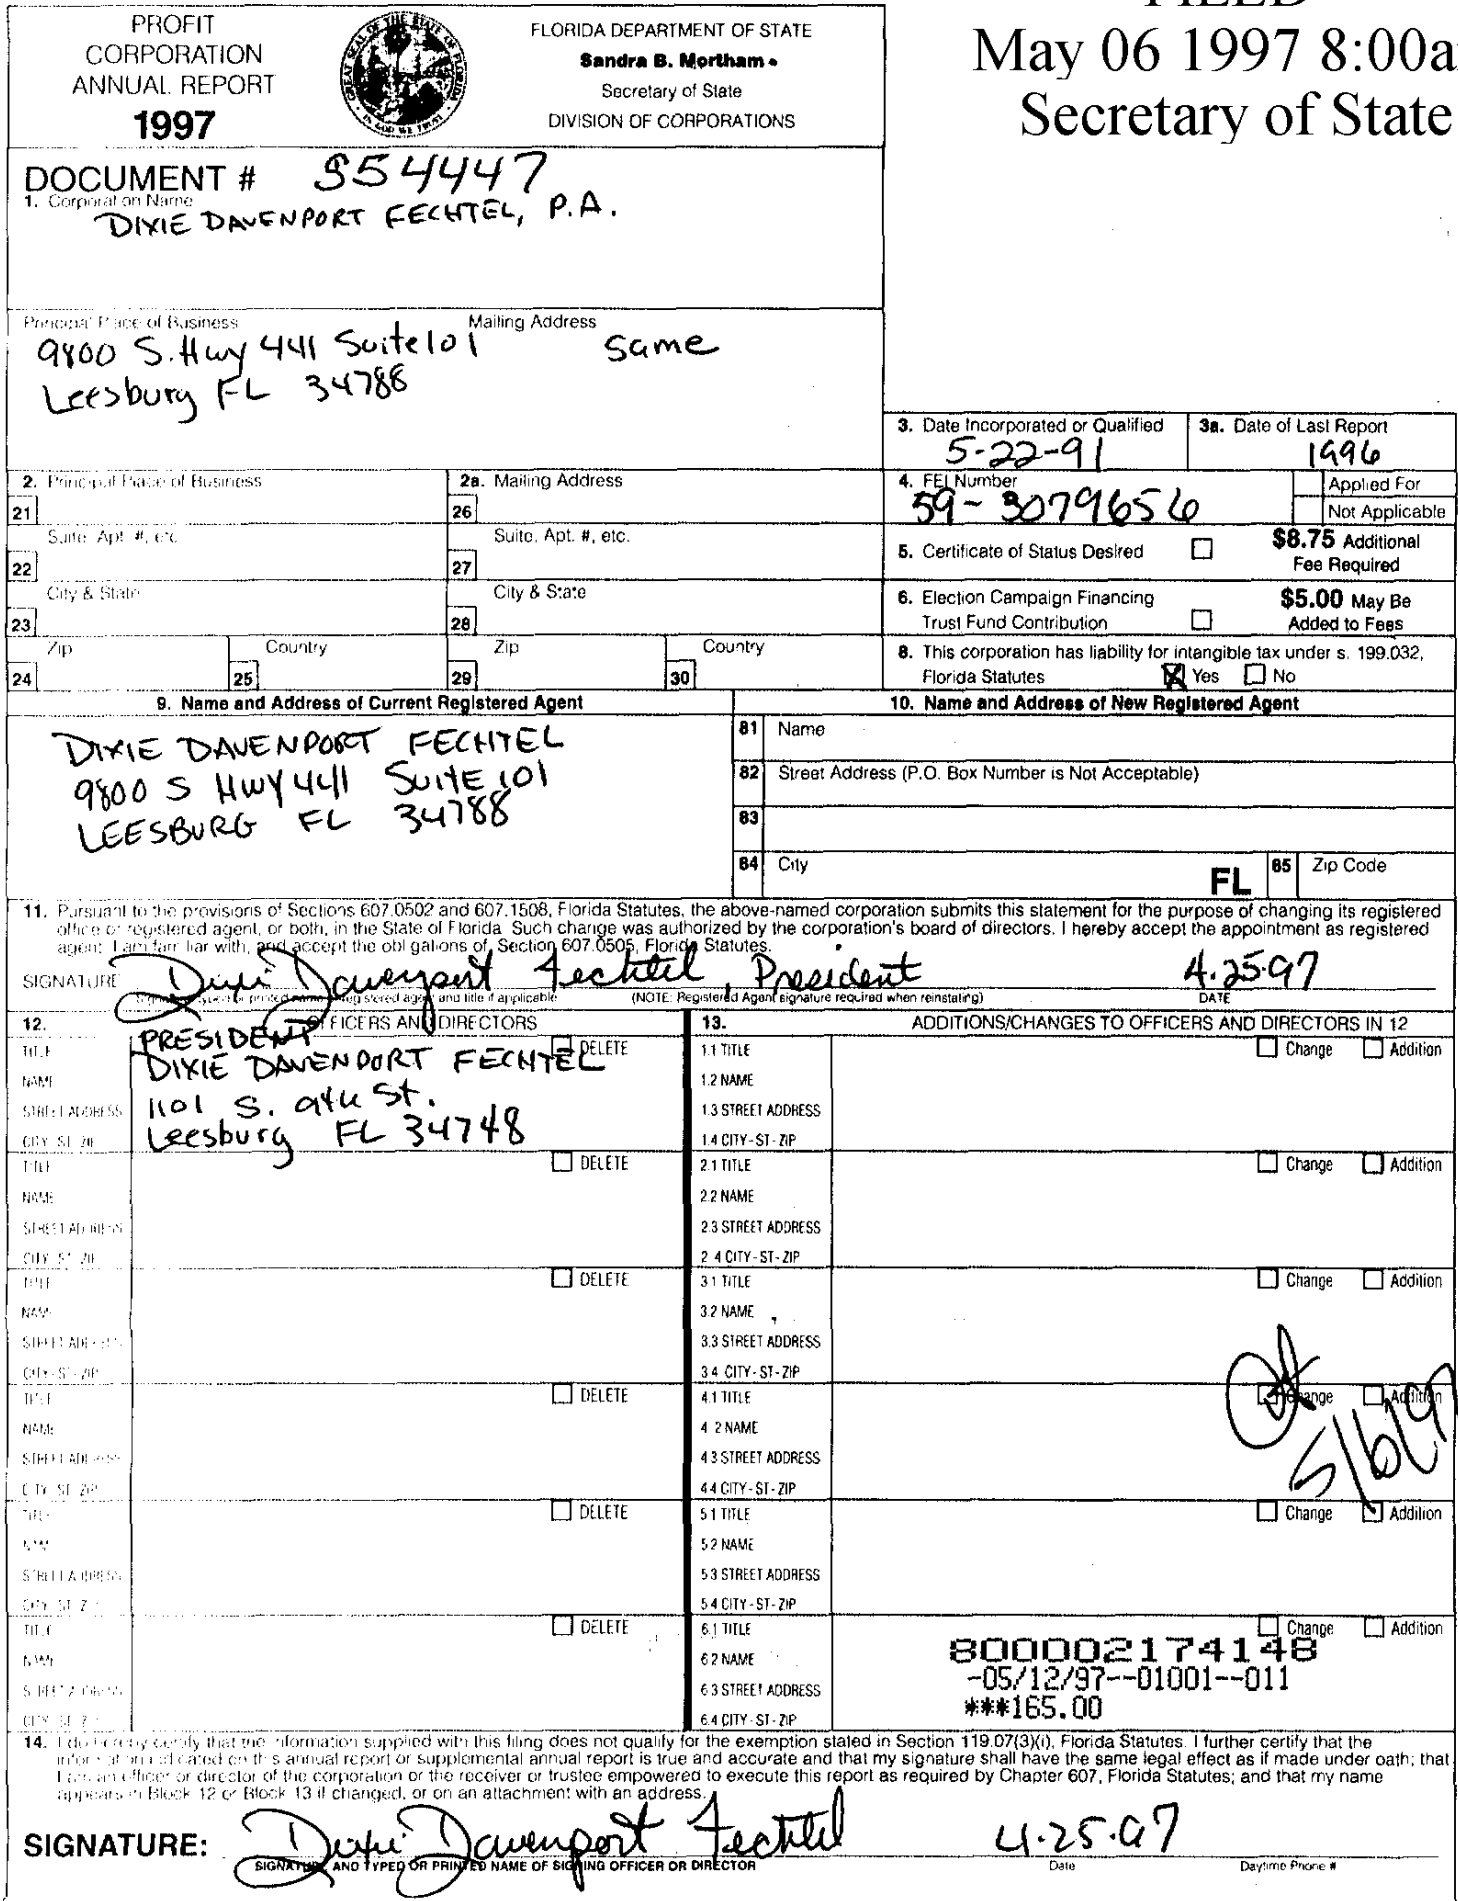 PROFIT
CORPORATION
ANNUAL REPORT
1997
FLORIDA DEPARTMENT OF STATE
Sandra B. Mortham
Secretary of State
DIVISION OF CORPORATIONS
FILED
May 06 1997 8:00a
Secretary of State
DOCUMENT # S54447
1. Corporation Name
DIXIE DAVENPORT FECHTEL, P.A.
Principal Place of Business Mailing Address
9800 S. Hwy 441 Suite 101 Same
Leesburg FL 34788
3. Date Incorporated or Qualified 3a. Date of Last Report
5-22-91 1996
2. Principal Place of Business 2a. Mailing Address
21 26
4. FEI Number Applied For
59-3079656 Not Applicable
Suite, Apt. #, etc. Suite, Apt. #, etc.
22 27
5. Certificate of Status Desired $8.75 Additional
Fee Required
City & State City & State
23 28
6. Election Campaign Financing $5.00 May Be
Trust Fund Contribution Added to Fees
Zip Country Zip Country
24 25 29 30
8. This corporation has liability for intangible tax under s. 199.032,
Florida Statutes Yes No
9. Name and Address of Current Registered Agent
DIXIE DAVENPORT FECHTEL
9800 S HWY 441 SUITE 101
LEESBURG FL 34788
10. Name and Address of New Registered Agent
81 Name
82 Street Address (P.O. Box Number is Not Acceptable)
83
84 City FL 85 Zip Code
11. Pursuant to the provisions of Sections 607.0502 and 607.1508, Florida Statutes, the above-named corporation submits this statement for the purpose of changing its registered
office or registered agent, or both, in the State of Florida. Such change was authorized by the corporation's board of directors. I hereby accept the appointment as registered
agent. I am familiar with, and accept the obligations of, Section 607.0505, Florida Statutes.
SIGNATURE Dixie Davenport Fechtel, President 4.25.97
registered agent and title if applicable (NOTE: Registered Agent signature required when reinstating) DATE
12. OFFICERS AND DIRECTORS
TITLE PRESIDENT DELETE
NAME DIXIE DAVENPORT FECHTEL
STREET ADDRESS 1101 S. 9th St.
CITY-ST-ZIP Leesburg FL 34748
TITLE DELETE
NAME
STREET ADDRESS
CITY-ST-ZIP
TITLE DELETE
NAME
STREET ADDRESS
CITY-ST-ZIP
TITLE DELETE
NAME
STREET ADDRESS
CITY-ST-ZIP
TITLE DELETE
NAME
STREET ADDRESS
CITY-ST-ZIP
TITLE DELETE
NAME
STREET ADDRESS
CITY-ST-ZIP
13. ADDITIONS/CHANGES TO OFFICERS AND DIRECTORS IN 12
1.1 TITLE Change Addition
1.2 NAME
1.3 STREET ADDRESS
1.4 CITY-ST-ZIP
2.1 TITLE Change Addition
2.2 NAME
2.3 STREET ADDRESS
2.4 CITY-ST-ZIP
3.1 TITLE Change Addition
3.2 NAME
3.3 STREET ADDRESS
3.4 CITY-ST-ZIP
4.1 TITLE Change Addition
4.2 NAME
4.3 STREET ADDRESS
4.4 CITY-ST-ZIP
5/6/97
5.1 TITLE Change Addition
5.2 NAME
5.3 STREET ADDRESS
5.4 CITY-ST-ZIP
6.1 TITLE Change Addition
6.2 NAME 800002174148
6.3 STREET ADDRESS -05/12/97--01001--011
6.4 CITY-ST-ZIP ***165.00
14. I do hereby certify that the information supplied with this filing does not qualify for the exemption stated in Section 119.07(3)(i), Florida Statutes. I further certify that the
information indicated on this annual report or supplemental annual report is true and accurate and that my signature shall have the same legal effect as if made under oath; that
I am an officer or director of the corporation or the receiver or trustee empowered to execute this report as required by Chapter 607, Florida Statutes; and that my name
appears in Block 12 or Block 13 if changed, or on an attachment with an address.
SIGNATURE: Dixie Davenport Fechtel 4.25.97
SIGNATURE AND TYPED OR PRINTED NAME OF SIGNING OFFICER OR DIRECTOR Date Daytime Phone #